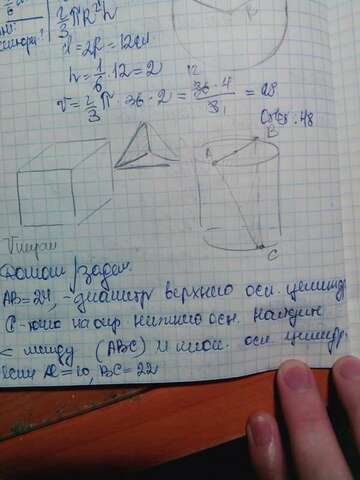 2/3 πR²h
d = 2R = 12см
h = 1/6 · 12 = 2
V = 2/3 π · 36 · 2 = 36 · 4 / 3 = 28
12
1
Ответ: 48
A
B
C
Домаш /задан.
AB=24, - диаметр верхнего осн. цилинд
C - на окр. нижнего осн. найдит
< между (ABC) и плос. осн. цилиндр
если AC = 10, BC = 22